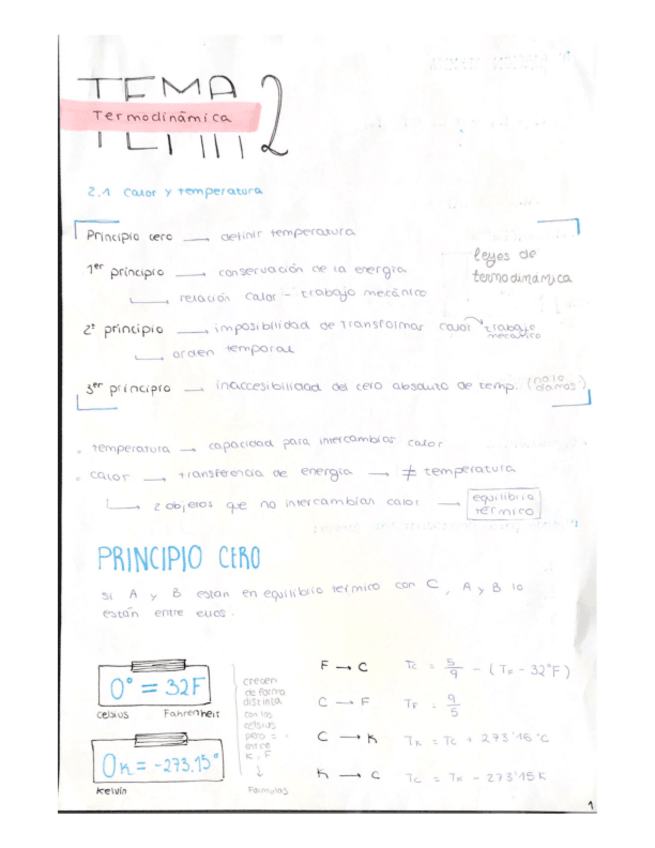 TEMA 2
Termodinámica
2.1 Calor y temperatura
Principio cero → definir temperatura
leyes de
termodinámica
1er principio → conservación de la energía
→ relación calor - trabajo mecánico
2º principio → imposibilidad de transformar calor → trabajo mecánico
→ orden temporal
3er principio → inaccesibilidad del cero absoluto de temp. (no lo damos)
• temperatura → capacidad para intercambiar calor
• calor → transferencia de energía → ≠ temperatura
→ 2 objetos que no intercambian calor → equilibrio térmico
PRINCIPIO CERO
Si A y B estan en equilibrio térmico con C, A y B lo
están entre ellos.
0° = 32F
Celsius Fahrenheit
0K = -273.15°
Kelvin
crecen
de forma
distinta
con los
celsius
pero = 
entre
K, F
↓
Fórmulas
F → C Tc = 5/9 - (TF - 32°F)
C → F TF = 9/5
C → K TK = Tc + 273'16°C
K → C Tc = TK - 273'15K
1